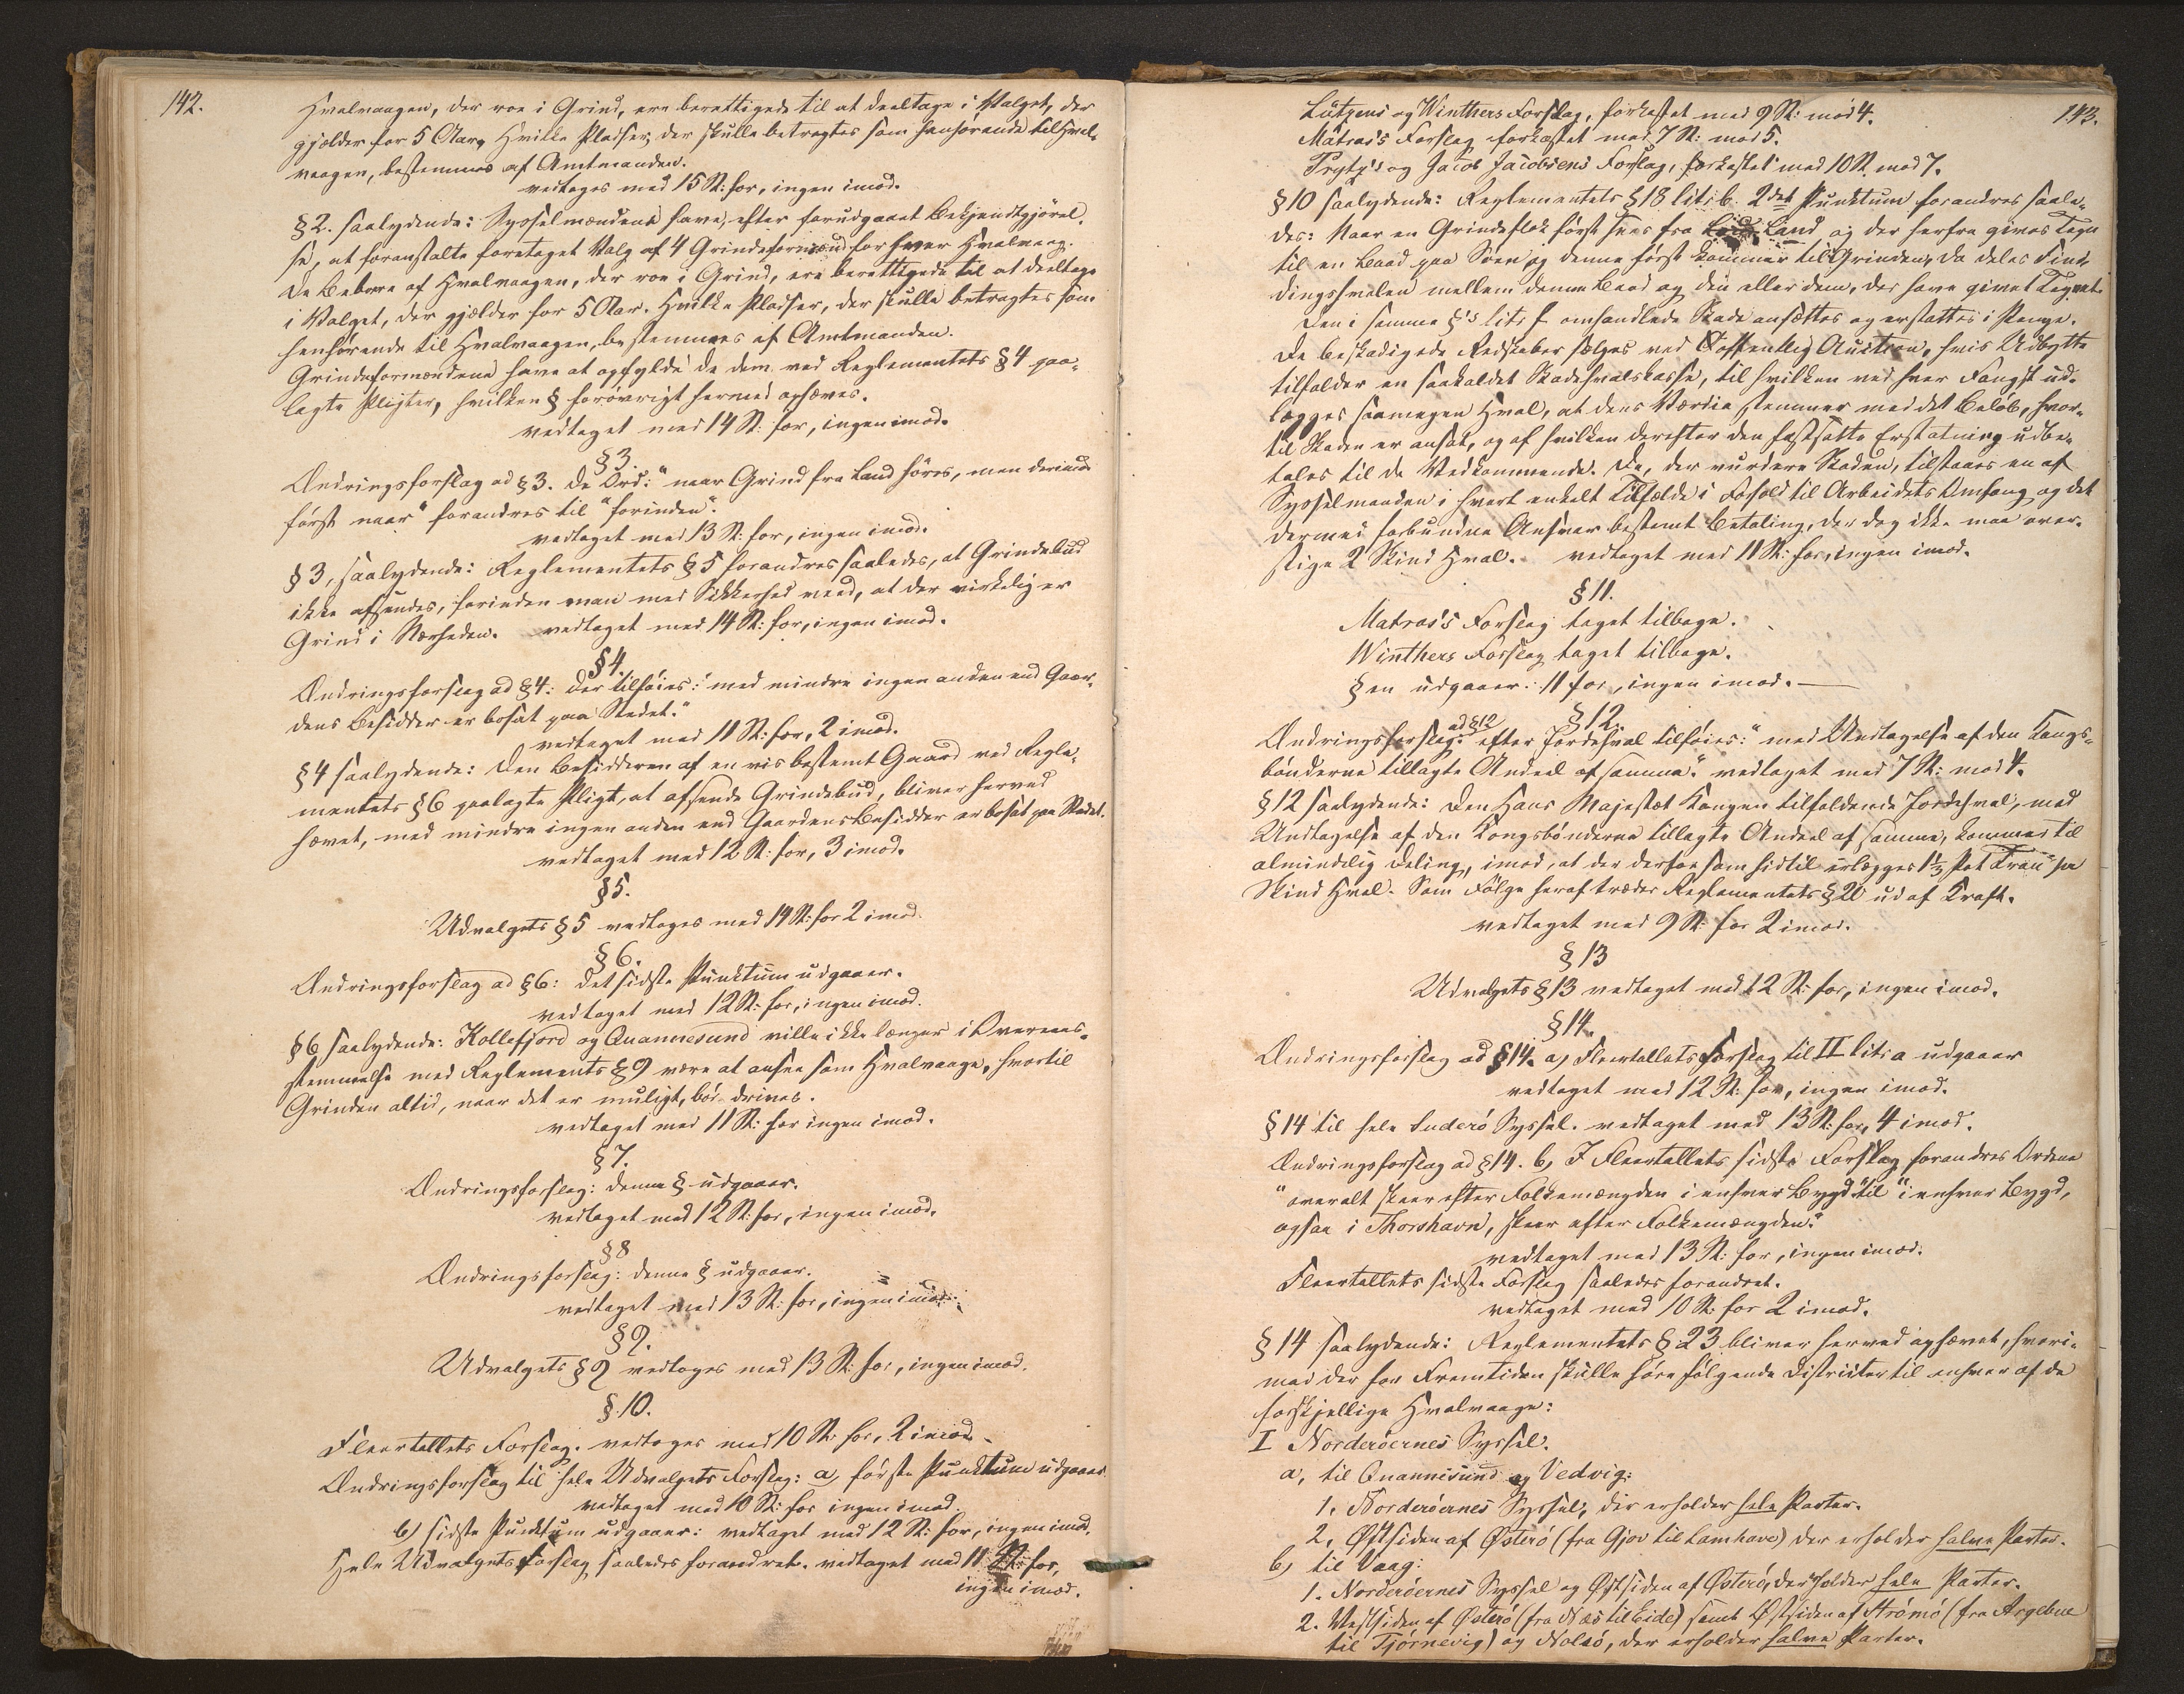 142.
Hvalvaagen, der roe i Grind, ere berettigede til at deeltage i Valget, der
gjælder for 5 Aar. Hvilke Pladser, der skulle betragtes som henhørende til Hval-
vaagen, bestemmes af Amtmanden.
vedtages med 15 St: for, ingen imod.
§ 2. saalydende: Sysselmændene have, efter forudgaaet Bekjendtgjørel,
se, at foranstalte foretaget Valg af 4 Grindeformænd for hver Hvalvaag.
De Beboere af Hvalvaagen, der roe i Grind, ere berettigede til at deeltage
i Valget, der gjælder for 5 Aar. Hvilke Pladser, der skulle betragtes som
henhørende til Hvalvaagen, bestemmes af Amtmanden.
Grindeformændene have at opfylde de dem ved Reglementets § 4 paa-
lagte Pligter, hvilken § forøvrigt hermed ophæves.
vedtaget med 14 St: for, ingen imod.
§ 3.
Ændringsforslag ad § 3. De Ord: "naar Grind fra Land høres, men derimod
først naar" forandres til "forinden".
vedtaget med 13 St: for, ingen imod.
§ 3, saalydende: Reglementets § 5 forandres saaledes, at Grindebud
ikke afsendes, forinden man med Sikkerhed veed, at der virkelig er
Grind i Nærheden. vedtaget med 14 St: for, ingen imod.
§ 4.
Ændringsforslag ad § 4: der tilføies: "med mindre ingen anden end Gaar-
dens Besidder er bosat paa Stedet."
vedtaget med 11 St: for, 2 imod.
§ 4 saalydende: Den Besidderen af en vis bestemt Gaard ved Regle-
mentets § 6 paalagte Pligt, at afsende Grindebud, bliver herved
hævet, med mindre ingen anden end Gaardens Besidder er bosat paa Stedet.
vedtaget med 12 St: for, 3 imod.
§ 5.
Udvalgets § 5 vedtages med 14 St: for 2 imod.
§ 6.
Ændringsforslag ad § 6: det sidste Punktum udgaaer.
vedtaget med 12 St: for, ingen imod.
§ 6 saalydende: Kollefjord og Quannesund ville ikke længer i Overeens-
stemmelse med Reglements § 9 være at ansee som Hvalvaage, hvortil
Grinden altid, naar det er muligt, bør drives.
vedtaget med 11 St: for ingen imod.
§ 7.
Ændringsforslag: denne § udgaaer.
vedtaget med 12 St: for, ingen imod.
§ 8
Ændringsforslag: denne § udgaaer.
vedtaget med 13 St: for, ingen imod.
§ 9.
Udvalgets § 9 vedtages med 13 St: for, ingen imod.
§. 10.
Fleertallets Forslag. vedtages med 10 St: for, 2 imod.
Ændringsforslag til hele Udvalgets Forslag: a, første Punktum udgaaer
vedtaget med 10 St: for ingen imod.
b) sidste Punktum udgaaer: vedtaget med 12 St: for, ingen imod.
Hele Udvalgets Forslag saaledes forandret. vedtaget med 11 St: for,
ingen imod.
143.
Lützens og Winthers Forslag, forkastet med 9 St: mod 4.
Matras's Forslag forkastet med 7 St: mod 5.
Prytz's og Jacob Jacobsens Forslag, forkastet med 10 St. mod 7.
§ 10 saalydende: Reglementets § 18 litr. b. 2det Punktum forandres saale-
des: Naar en Grindeflok først sees fra Land og der herfra gives Tegn
til en Baad paa Søen, og denne først kommer til Grinden, da deles Find-
dingshvalen mellem denne Baad og den eller dem, der have givet Tegnet.
Den i samme §'s litr. f omhandlede Skade ansættes og erstattes i Penge.
De beskadigede Redskaber sælges ved Offentlig Auction, hvis Udbytte
tilfalder en saakaldet Skadehvalskasse, til hvilken ved hver Fangst ud-
lægges saamegen Hval, at dens Værdie stemmer med det Beløb, hvor-
til Skaden er ansat, og af hvilken derefter den fastsatte Erstatning udbe-
tales til de Vedkommende. De, der vurdere Skaden, tilstaaes en af
Sysselmanden i hvert enkelt Tilfælde i Forhold til Arbeidets Omfang og det
dermed forbundne Ansvar bestemt Betaling, der dog ikke maa over-
stige 2 Skind Hval. vedtaget med 11 St: for, ingen imod.
§ 11.
Matras's Forslag taget tilbage.
Winthers Forslag taget tilbage.
§ en udgaaer: 11 for, ingen imod.
§ 12.
Ændringsforslag ad § 12: efter Jordehval tilføies: "med Undtagelse af den Kongs-
bønderne tillagte Andeel af samme". vedtaget med 7 St: mod 4.
§ 12 saalydende: Den Hans Majestæt Kongen tilfaldende Jordehval, med
Undtagelse af den Kongsbønderne tillagte Andeel af samme, kommer til
almindelig Deling, imod, at der derfor som hidtil erlægges 1½ Pot Tran pr
Skind Hval. Som Følge heraf træder Reglementets § 20 ud af Kraft.
vedtaget med 9 St: for 2 imod.
§ 13
Udvalgets § 13 vedtaget med 12 St: for, ingen imod.
§ 14.
Ændringsforslag ad § 14. a, Fleertallets Forslag til II litr. a udgaaer
vedtaget med 12 St: for, ingen imod.
§ 14 til hele Suderø Syssel. vedtaget med 13 St: for, 4 imod.
Ændringsforslag ad § 14. b, I Fleertallets sidste Forslag forandres Ordene
"overalt skeer efter Folkemængden i enhver Bygd" til "i enhver Bygd,
ogsaa i Thorshavn, skeer efter Folkemængden."
vedtaget med 13 St: for, ingen imod.
Fleertallets sidste Forslag saaledes forandret.
vedtaget med 10 St: for 2 imod.
§ 14 saalydende: Reglementets § 23 bliver herved ophævet, hvori-
mod der for Fremtiden skulle høre følgende Districter til enhver af de
forskjellige Hvalvaage:
I Norderøernes Syssel.
a, til Quannesund og Vedvig:
1. Norderøernes Syssel, der erholder hele Parter.
2, Østsiden af Østerø (fra Gjov til Lamhave) der erholder halve Parter.
b) til Vaag:
1. Norderøernes Syssel og Østsiden af Østerø, der holder hele Parter.
2. Vestsiden af Østerø (fra Næs til Eide) samt Østsiden af Strømø (fra Argebue
til Tjørnevig) og Nolsø, der erholder halve Parter.